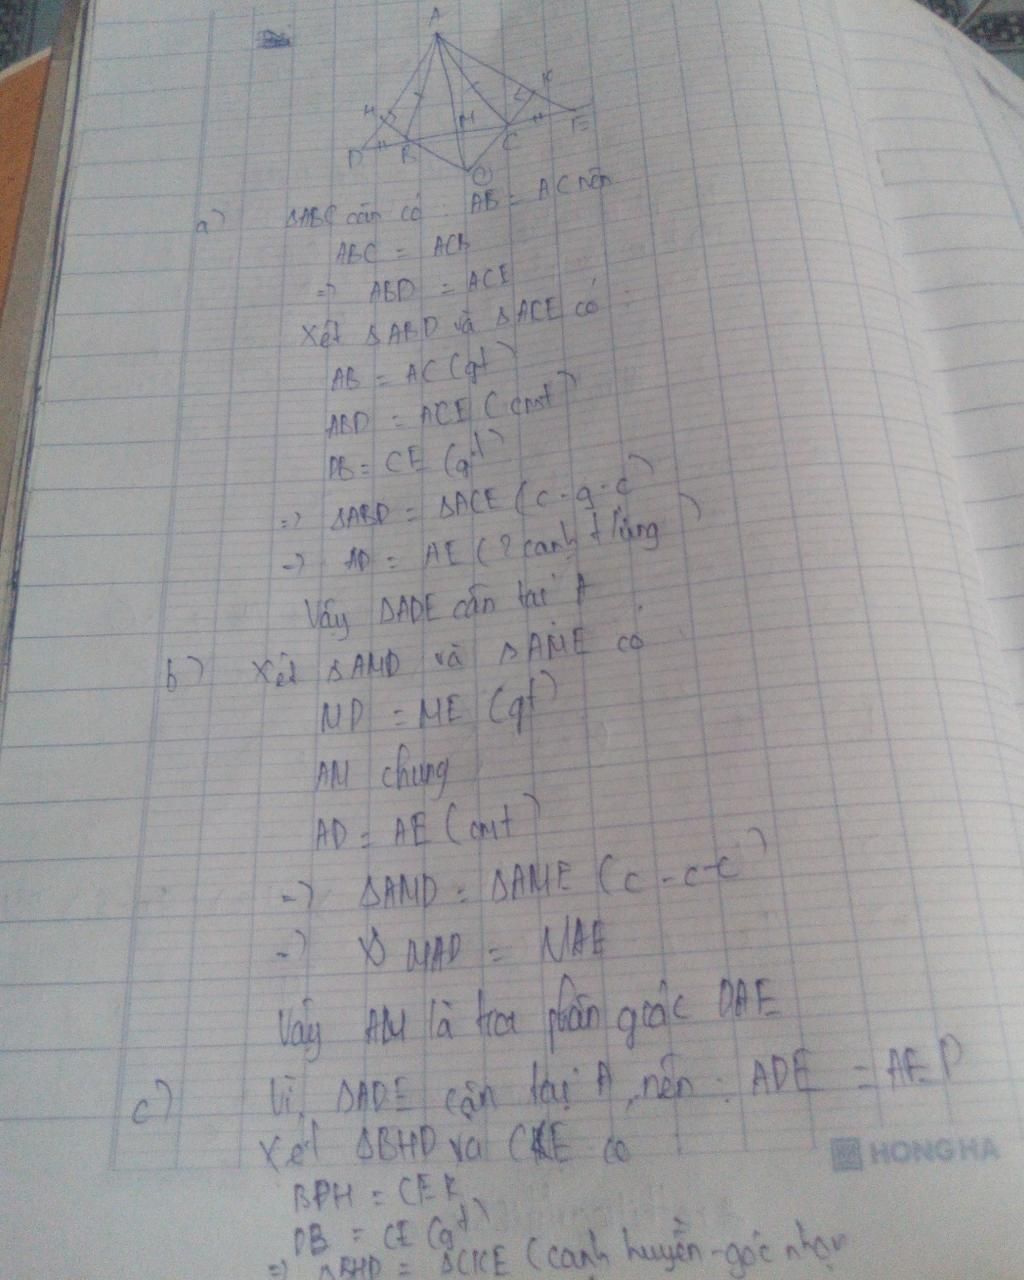 A
H
K
M
D
B
C
E
O
a) ΔABC cân có : AB = AC nên
ABC = ACB
=> ABD = ACE
Xét ΔABD và ΔACE có :
AB = AC (gt)
ABD = ACE (cmt)
DB = CE (gt)
=> ΔABD = ΔACE (c-g-c)
=> AD = AE (2 cạnh t ứng)
Vậy ΔADE cân tại A
b) Xét ΔAMD và ΔAME có
MD = ME (gt)
AM chung
AD = AE (cmt)
=> ΔAMD = ΔAME (c-c-c)
=> MAD = MAE
Vậy AM là tia phân giác DAE
c) Vì ΔADE cân tại A nên : ADE = AED
Xét ΔBHD và CKE có
BDH = CEK
DB = CE (gt)
=> ΔBHD = ΔCKE (cạnh huyền-góc nhọn
HONG HA